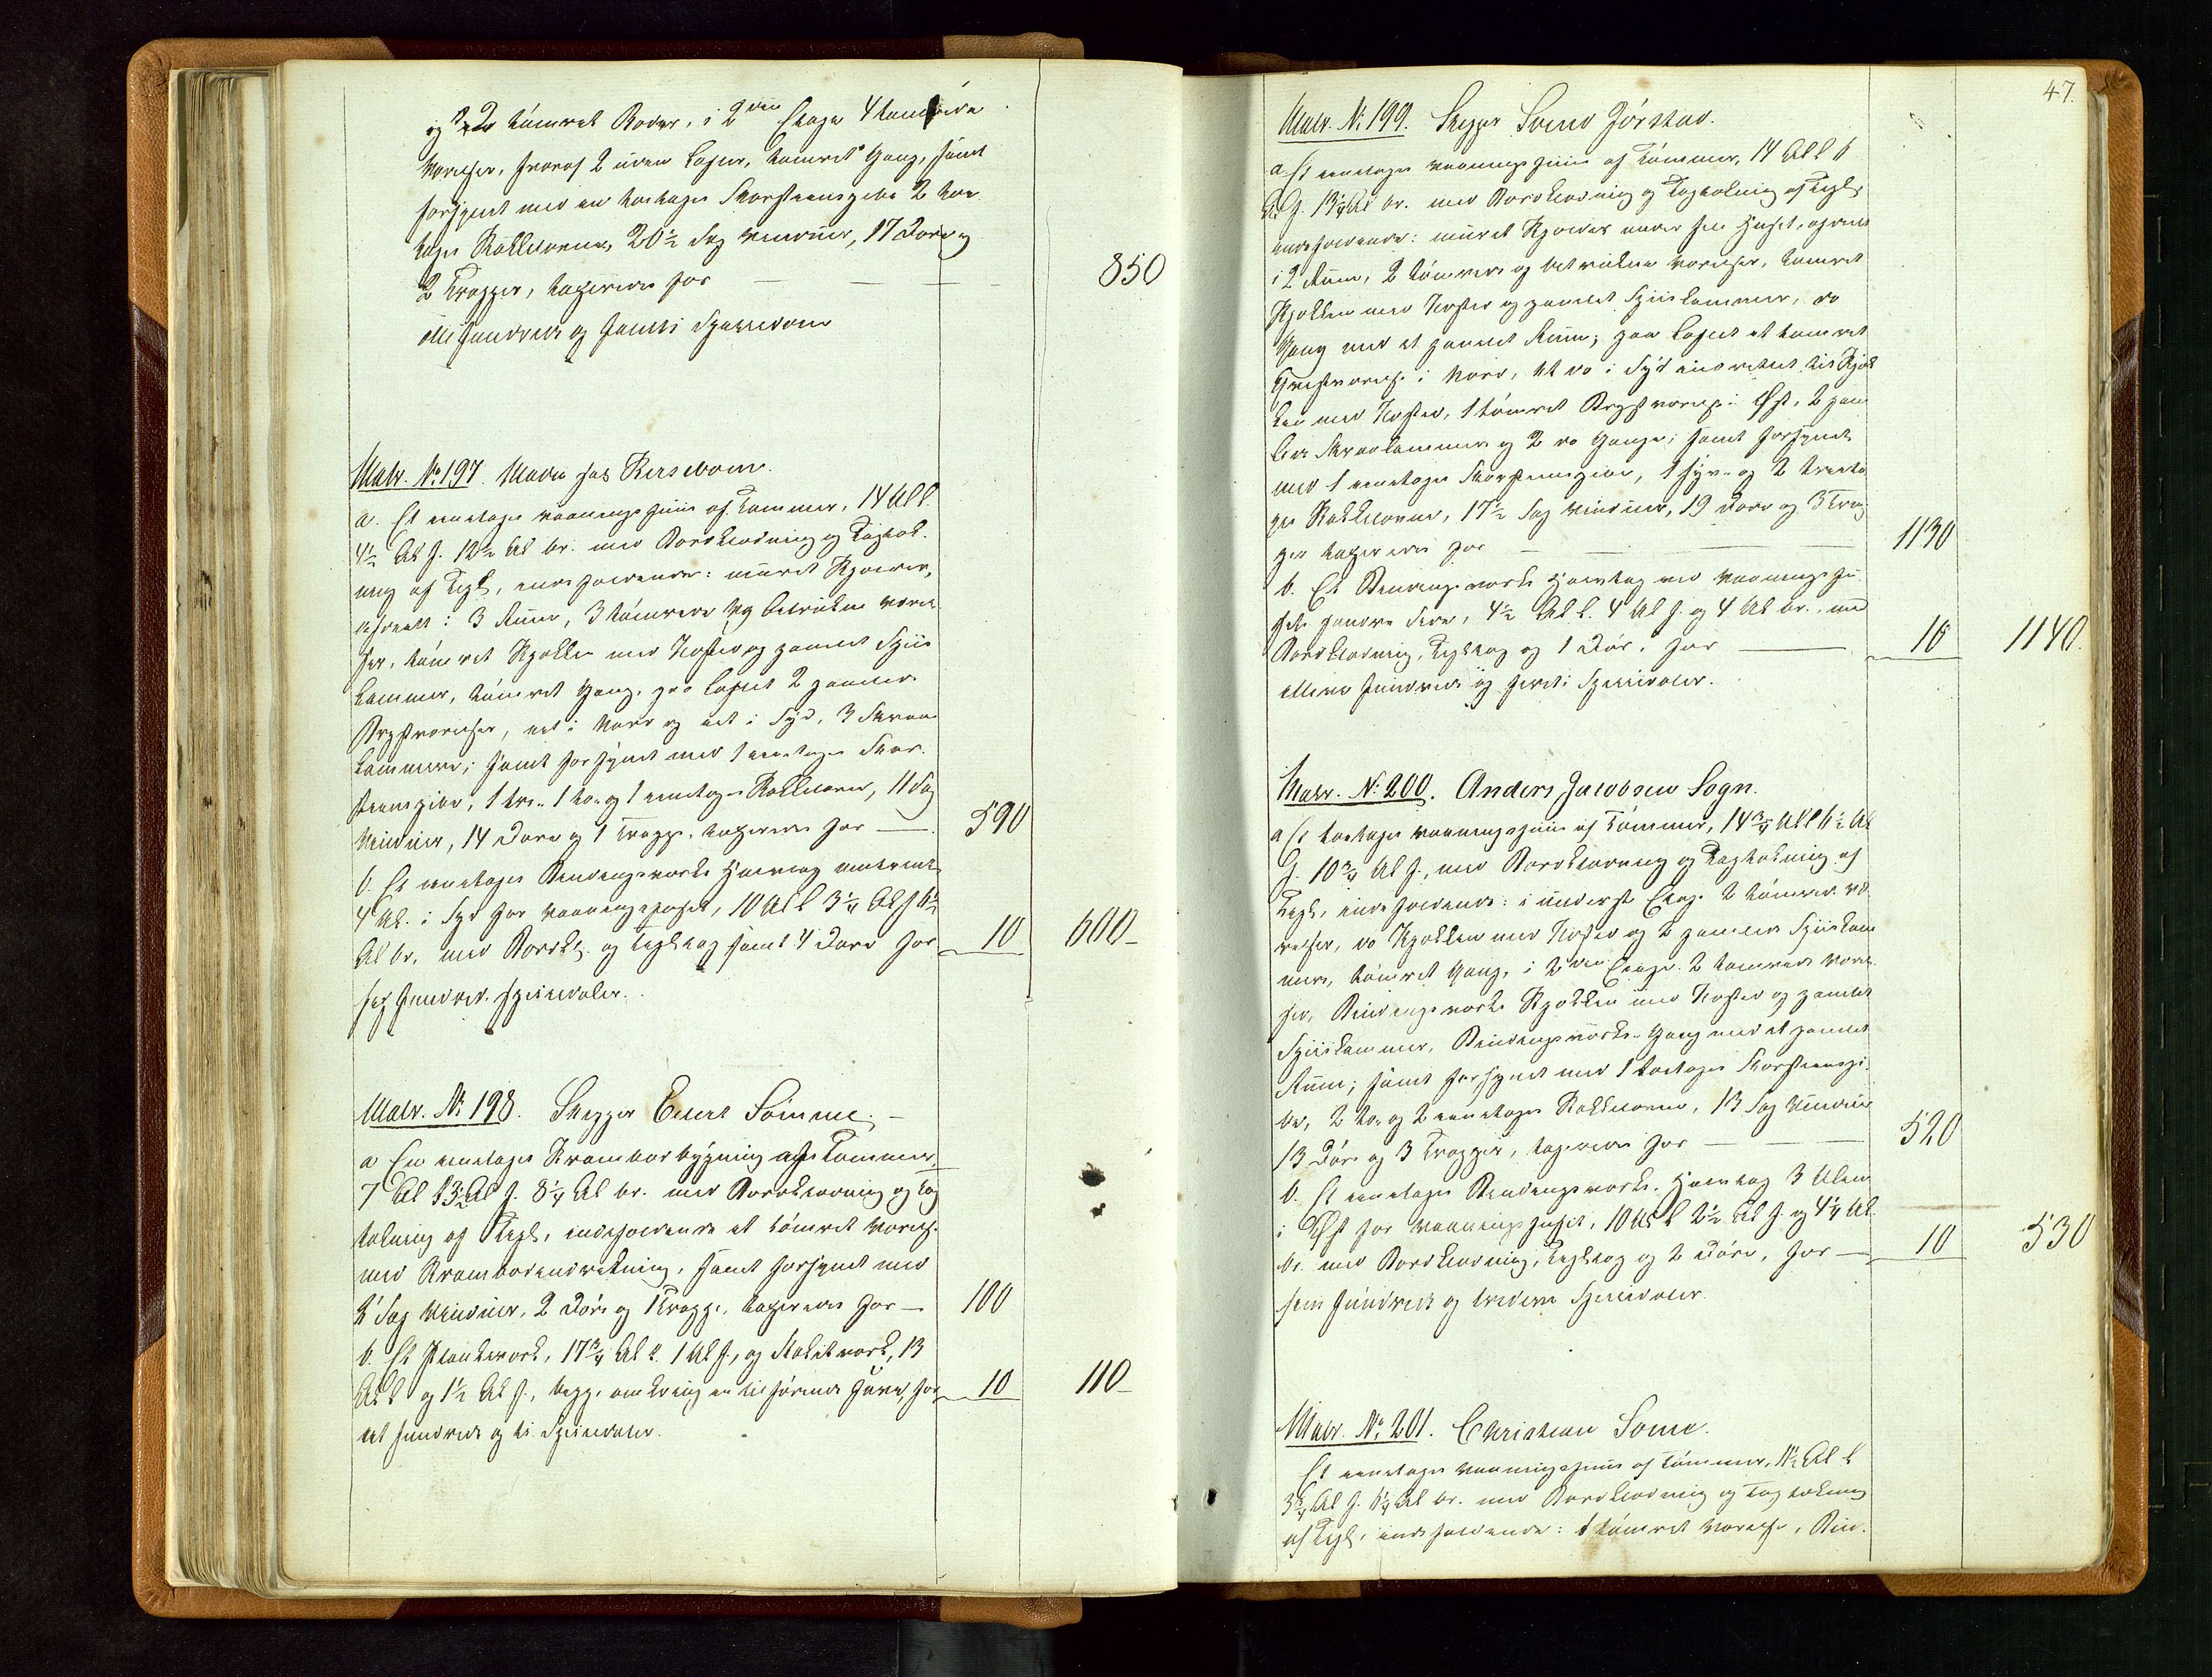 og 2 tømret Boder, i 2den Etage 4 tømrede
Værelser, hvoraf 2 uden Lofter, tømret Gang, samt
forsynet med en toetages Skorsteenspibe 2 toe
tages Kakkelovne, 20½ Fag Vinduer, 17 Døre og
2 Trapper, taxeredes for — — — 850
otte hundrede og femti Speciedaler
Matr. No 197. Mads Jas Berseboom.
a. Et eenetages Vaaningshuus af Tømmer, 14 Al l.
4½ Al h. 12½ Al br. med Bordklædning og Tagtæk-
ning af Tegl, indeholdende: muret Kjælder,
afdeelt i 3 Rum, 3 tømrede og betrukne Værel-
ser, tømret Kjøkken med Skorsteen og panelet Spiis
kammer, tømret Gang, paa Loftet 2 panelede
Brystværelser, eet i Nord og eet i Syd, 3 Skraa-
kammere; samt forsynet med 1 eenetages Skor-
steenspibe, 1 tre- 1 to- og 1 eenetages Kakkelovne, 11 Fag
Vinduer, 14 Døre og 1 Trappe, taxeredes for — 590
b. Et eenetages Bindingsværks Halvtag omtrent
4 Al. i Syd for Vaaningshuset, 10 Al l 3¼ Al h 6½
Al br. med Bordkl. og Tegltag samt 4 Døre for 10 600 —
sex hundrede Speciedaler.
Matr. No 198. Skipper Eilert Sømme. —
a En eenetages Krambodbygning af Tømmer,
7 Al l 3½ Al h. 8¼ Al br. med Bordklædning og Tag
tækning af Tegl, indeholdende et tømret Værelse
med Krambodindretning, samt forsynet med
2 Fag Vinduer, 2 Døre og 1 Trappe, taxeredes for — 100
b. Et Plankeværk, 17¾ Al l. 1 Al h., og Stakitværk, 13
Al l og 1½ Al h., begge omkring en tilhørende Have, for 10 110 —
eet hundrede og ti Speciedaler.
47.
Matr. No 199. Skipper Svend Jørstad.
a. Et eenetages Vaaningshuus af Tømmer, 14 Al l 6
Al h. 13¼ Al br. med Bordklædning og Tagtækning af Tegl,
indeholdende: muret Kjælder under hele Huset, afdeelt
i 2 Rum, 2 tømrede og betrukne Værelser, tømret
Kjøkken med Skorsteen og panelet Spiiskammer, do
Gang med et panelet Rum; paa Loftet et tømret
Qvistværelse i Nord, et do i Syd indrettet til Kjøk
ken med Skorsteen, 1 tømret Brystværelse i Øst, 2 pane
lede Skraakammere og 2 do Gange; samt forsynet
med 1 eenetages Skorsteenspibe, 1 fyr- og 2 treeta
ges Kakkelovne, 17½ Fag Vinduer, 19 Døre og 3 Trap
per taxeredes for — — — 1130
b. Et Bindingsværks Halvtag ved Vaaningshu-
sets søndre Side, 4½ Al l. 4 Al h. og 4 Al br., med
Bordklædning, Tegltag og 1 Dør, for — 10 1140.
elleve hundrede og firti Speciedaler.
Matr. No 200. Anders Jacobsen Sogn.
a Et toetages Vaaningshuus af Tømmer, 14¾ Al l 6½ Al
h. 10¾ Al br., med Bordklædning og Tagtækning af
Tegl, indeholdende: i underste Etage 2 tømrede Væ
relser, do Kjøkken med Skorsteen og 2 panelede Spiiskam
mere, tømret Gang, i 2den Etage 2 tømrede Værel-
ser, Bindingsværks Kjøkken med Skorsteen og panelet
Spiiskammer, Bindingsværks-Gang med et panelet
Rum; samt forsynet med 1 toetages Skorsteenspi-
be, 2 to- og 2 eenetages Kakkelovne, 13 Fag Vinduer
13 Døre og 3 Trapper, taxeredes for — — 520
b. Et eenetages Bindingsværks-Halvtag 3 Alen
i Øst for Vaaningshuset, 10 Al l 2½ Al h. og 4¼ Al.
br. med Bordklædning, Tegltag og 2 Døre, for — 10 530
fem hundrede og tredive Speciedaler.
Matr. No 201. Christian Some.
Et eenetages Vaaningshuus af Tømmer, 11½ Al l
3¾ Al h. 6¼ Al br. med Bordklædning og Tagtækning
af Tegl, indeholdende: 1 tømret Værelse, Bin-